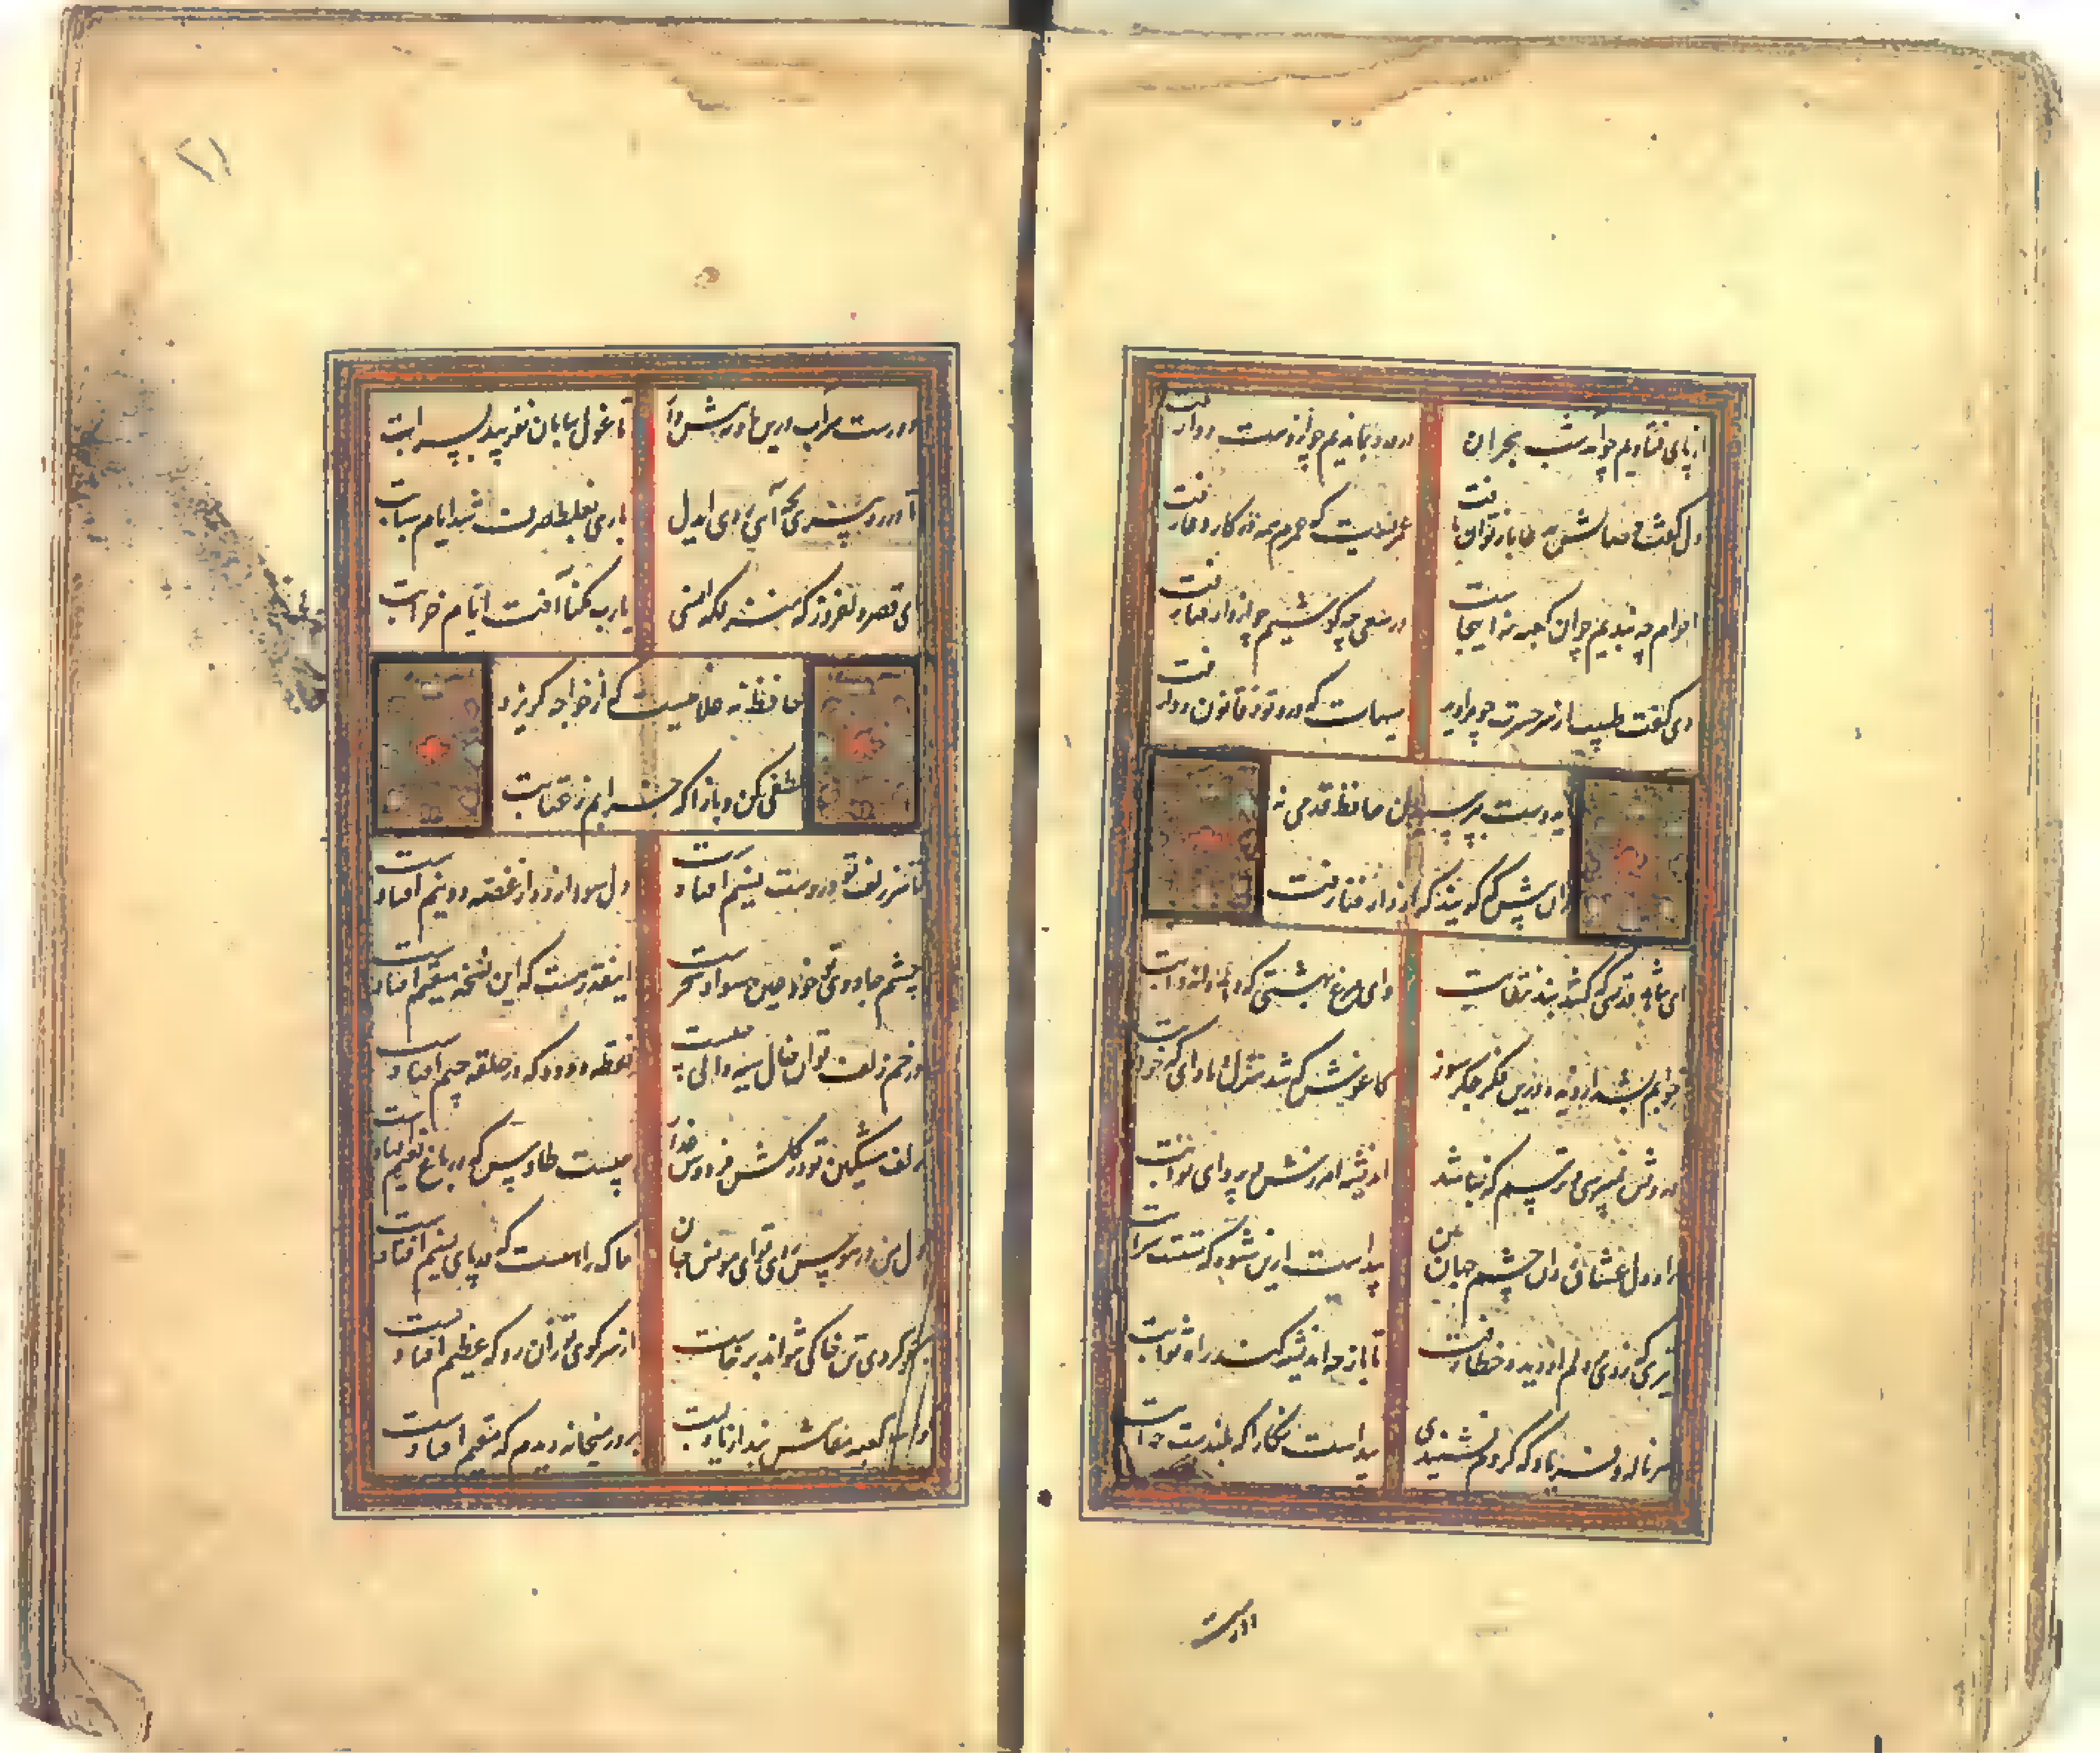 از پای فتادیم چو آمد شب هجران در درد بماندیم چو از دست دوا رفت
دل گفت وصالش به دعا باز توان یافت عمریست که عمرم همه در کار دعا رفت
احرام چه بندیم چو آن کعبه نه اینجاست در سعی چه کوشیم چو از
دی گفت طبیب از سر حسرت چو مرا دید هیهات که درد تو ز قانون رفت
ای دوست بپرسیدن حافظ قدمی نه
زان پیش که گویند که از دار فنا رفت
ای شاهد قدسی که کشد بند نقابت وای مرغ بهشتی که دهد دانه و آبت
خوابم بشد از دیده درین فکر جگر سوز کاغوش که شد منزل و ماوای که خوابت
درویش نمی‌پرسی و ترسم که نباشد اندیشه آمرزش و پروای ثوابت
راه دل عشاق زد آن چشم جهان بین پیداست ازین شیوه که مستست شرابت
تیری که زدی بر دلم از دیده خطا رفت تا باز چه اندیشه کند رای صوابت
هر ناله و فریاد که کردم نشنیدی پیداست نگارا که بلندست جنابت
دورست
۲۱
دورست سر آب درین بادیه تا غول بیابان نفریبد بسرابت
تا در ره پیری بچه آیین روی ای دل باری بغلط صرف شد ایام شبابت
ای قصر دلفروز که منزلگه انسی یارب مکناد آفت ایام خرابت
حافظ نه غلامیست که از خواجه گریزد
لطفی کن و باز آ که خرابم ز عتابت
تا سر زلف تو در دست نسیم افتادست دل سودازده از غصه دو نیم افتادست
چشم جادوی تو خود عین سواد سحرست اینقدر هست که این نسخه سقیم افتادست
در خم زلف تو آن خال سیه دانی چیست نقطه دوده که در حلقه جیم افتادست
زلف مشکین تو در گلشن فردوس عذار چیست طاوس که در باغ نعیم افتادست
دل من در هوس روی تو ای مونس جان خاک راهیست که در پای نسیم افتادست
همچو گرد این تن خاکی نتواند برخاست از سر کوی تو زان رو که عظیم افتادست
کعبه مقامش نبد از یاد لبت بر در میخانه دیدم که مقیم افتادست